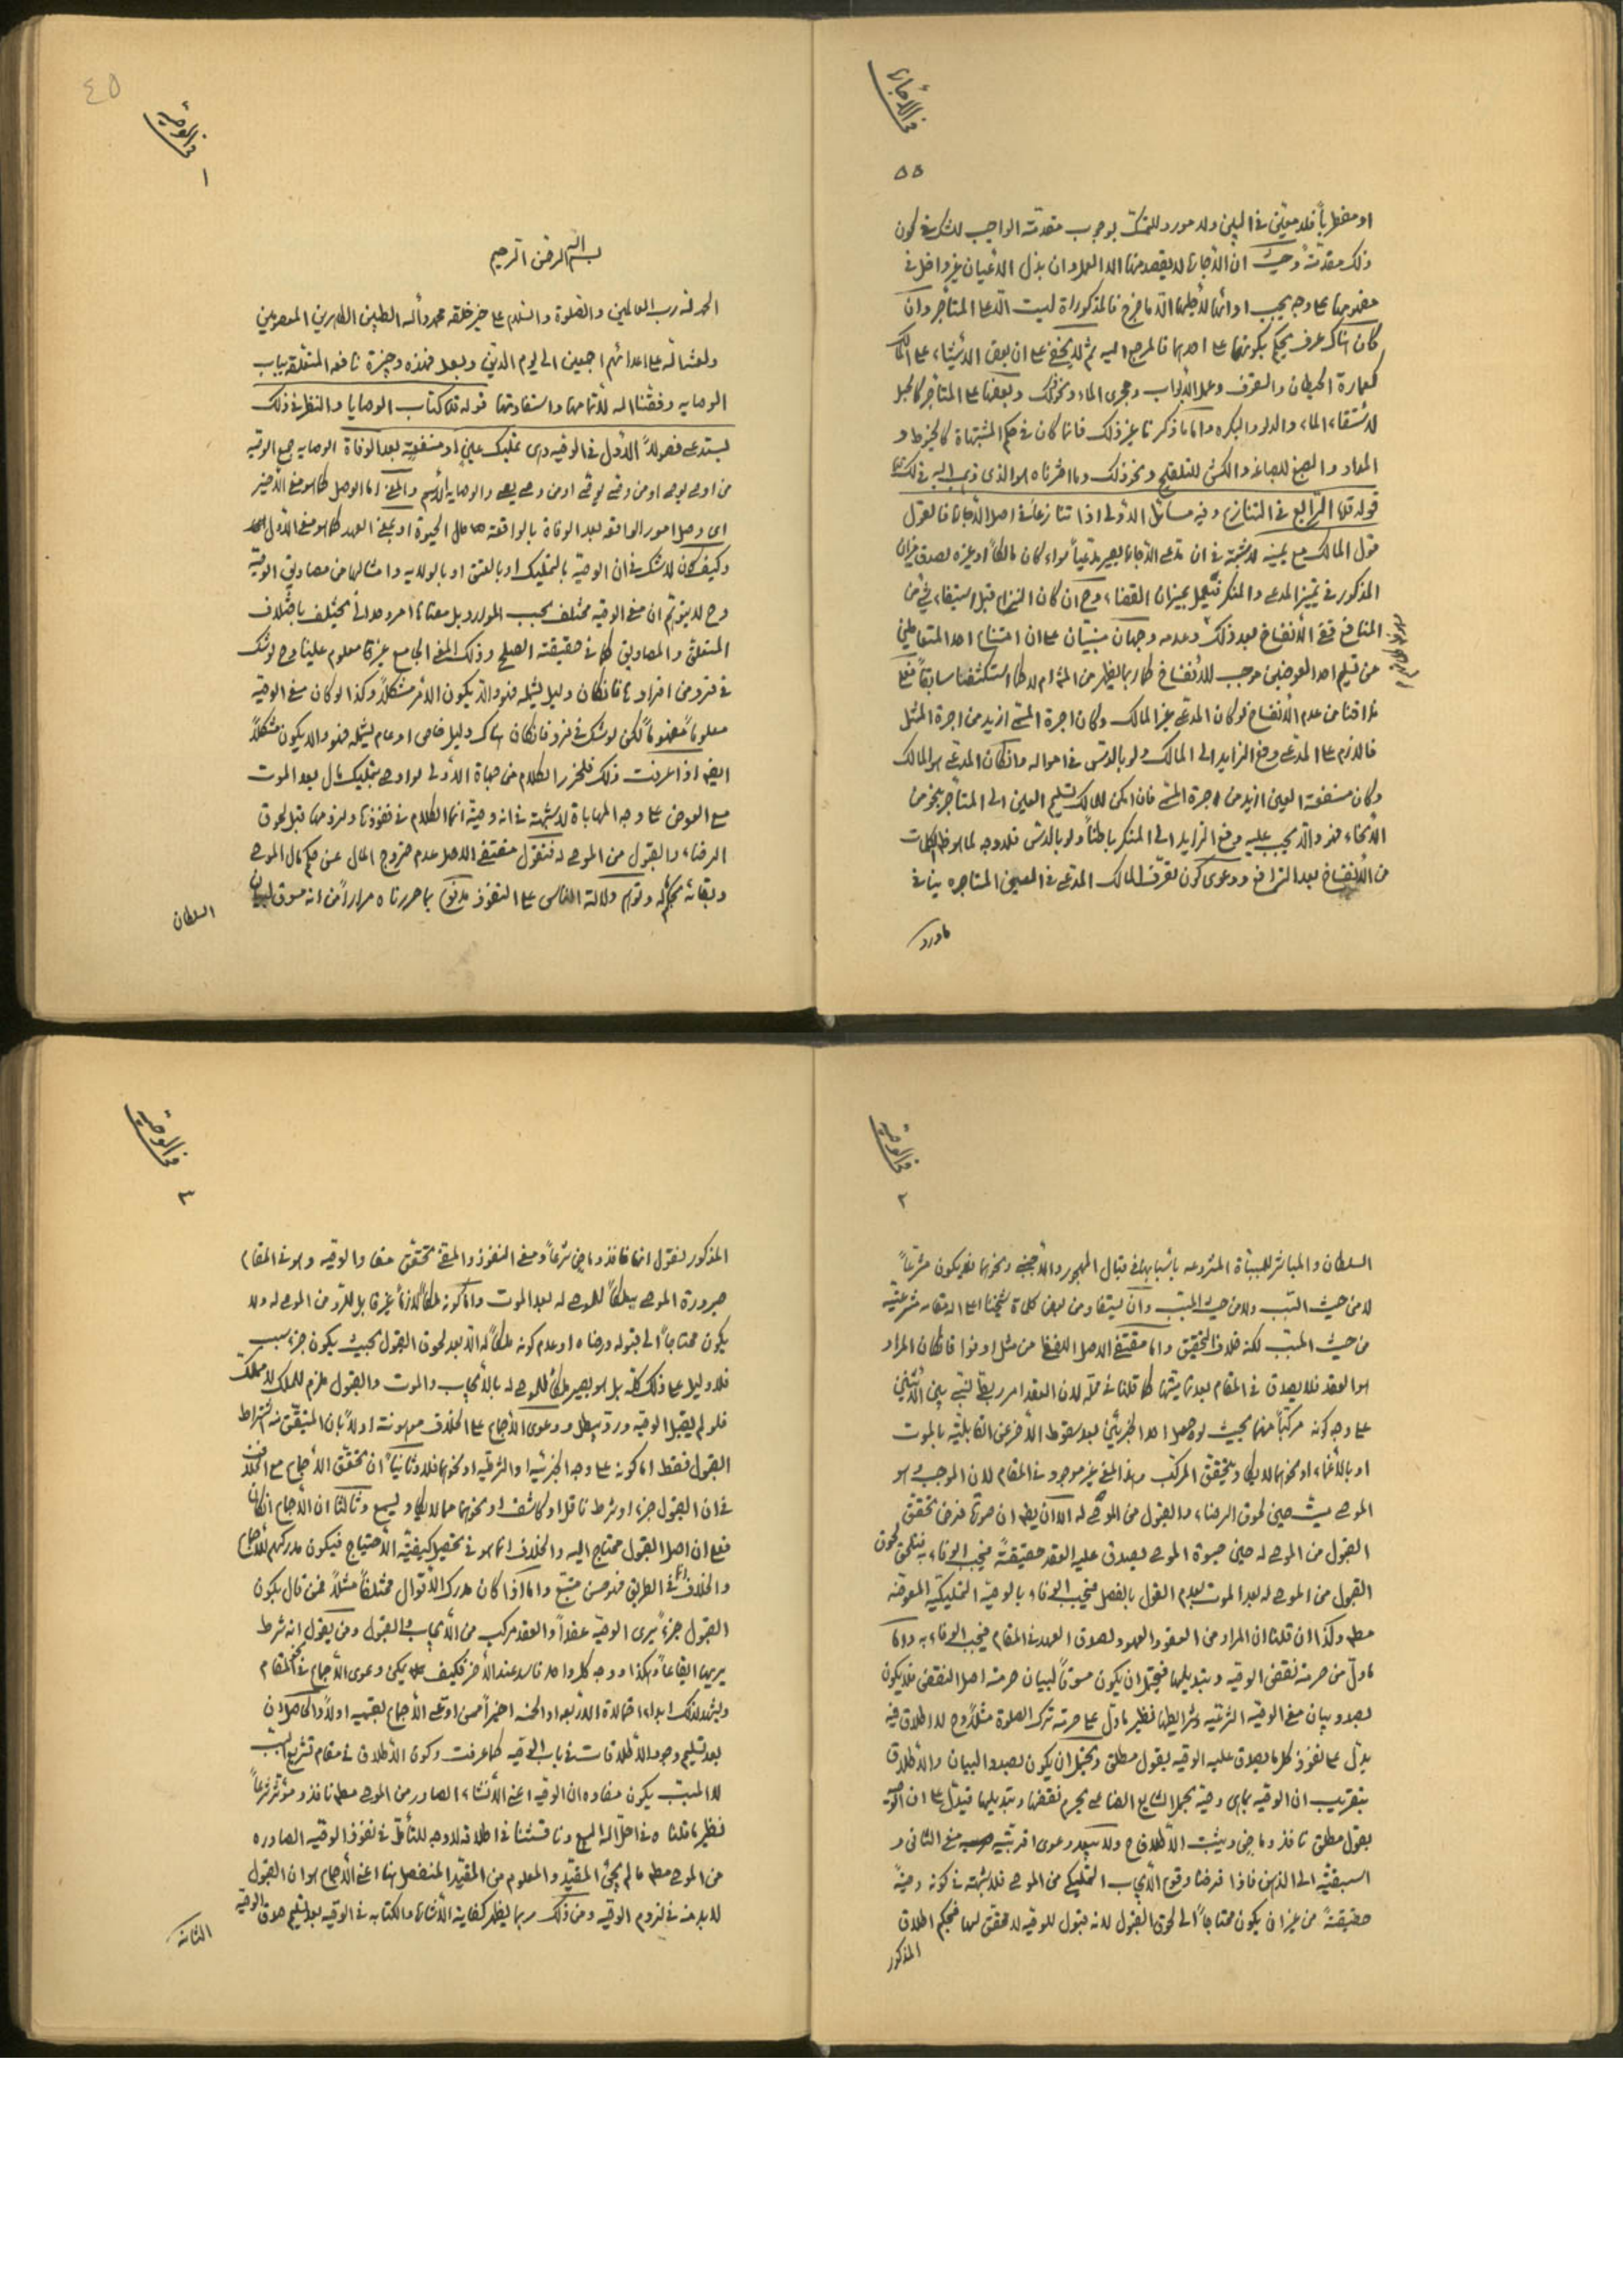 في الأجارة
٥٥
او مضطرباً فلا متيقن في البين ولا مورد للتمسك بوجوب مقدمة الواجب للشك في كون
ذلك مقدمة وحيث ان الأجارة لا يقصد منها الا العمل وان بذل الأعيان غير داخل في
مفهومها على وجه يجب او انها لأجلها الا ما خرج فالمذكورات ليست الا على المتأجر وان
كان هناك عرف يحكم بكونها على احدهما فالمرجع اليه ثم لا يخفى ان بعض الأشياء على المالك
كعمارة الحيطان والسقوف وعمل الأبواب ومجرى الماء ونحو ذلك وبعضها على المتأجر كالحبل
لأستقاء الماء والدلو والبكره واما ما ذكرنا غير ذلك فانما كان في حكم المشتبهات كالخيوط و
المداد والصبغ للصباغه والكش للتلقيح ونحو ذلك وما اخترناه هو الذي ذهب اليه في ذلك
قوله قده الرابع في التنازع وفيه مسائل الأولى اذا تنازعا في اصل الأجارة فالقول
قول المالك مع يمينه لا شبهة في ان مدعى الأجارة يصير مدعياً سواء كان مالكاً او غيره لصدق ميزان
المذكور في تمييز المدعى والمنكر فيعمل بميزان القضاء وح ان كان النزاع قبل استيفاء شيء من
المنافع ففي الأنفساخ بعد ذلك وعدمه وجهان مبنيان على ان امتناع احد المتعاطين
من تسليم احد العوضين موجب للأنفساخ كما ربما يظهر من المش ام لا كما استكشفنا سابقاً فعلى
مذاقنا من عدم الأنفساخ لو كان المدعى غير المالك وكان اجرة المسمى ازيد من اجرة المثل
فاللازم على المدعى دفع الزايد الى المالك ولو بالدس في امواله وان كان المدعى هو المالك
وكان منفعة العين ازيد من اجرة المسمى فان امكن للمالك تسليم العين الى المتأجر بنحو من
الأنحاء فهو والا يجب عليه دفع الزايد الى المنكر باطناً ولو بالدس فلا وجه لما هو ظاهر الكلمات
من الأنفساخ بعد الترافع ودعوى كون تصرف المالك المدعى في العين المتاجره ينافي
ماورد
٤٥
في الوصية
١
بسم الله الرحمن الرحيم
الحمد لله رب العالمين والصلوة والسلام على خير خلقه محمد وآله الطيبين الطاهرين المعصومين
ولعنة الله على اعدائهم اجمعين الى يوم الدين وبعد فهذه وجيزة نافعه المتعلقة بباب
الوصايه وفقنا الله لأتمامها واستفادتها قوله قده كتاب الوصايا والنظر في ذلك
يستدعى فصولاً الأول في الوصيه وهى تمليك عين او منفعة بعد الوفاة الوصايه جمع الوصية
من اوصى يوصى او من وصى يوصى او من وصى يصى والوصايه أسم والمعنى اما الوصل كما هو معنى الأخير
اى وصل امور الواقعه بعد الوفاة بالواقعة حال الحيوة او بمعنى العهد كما هو معنى الأول
وكيف كان لا شك في ان الوصية بالتمليك او بالعتق او بالولايه وامثالها من مصاديق الوصية
وح لا يتوهم ان معنى الوصيه مختلف بحسب الموارد بل معناها امر وحدانى يختلف باختلاف
المتعلق والمصاديق كما في حقيقته الصلح وذلك المعنى الجامع غير معلوم علينا وح لو شك
في فرد من افرادها فان كان دليل يشمله فهو والا يكون الأمر مشكلاً وكذا لو كان معنى الوصيه
معلوماً مفهوماً لكن لو شك في فرد فان كان هناك دليل خاص او عام يشمله فهو والا يكون مشكلاً
ايضا اذا عرفت ذلك فلنحرر الكلام من جهات الأولى لو اوصى بتمليك مال بعد الموت
مع العوض على وجه المهاباة لا شبهة في انه وصية انما الكلام في نفوذها ولزومها قبل لحوق
الرضاء والقبول من الموصى له فنقول مقتضى الاصل عدم خروج المال عن حكم مال الموصى
وبقائه بحكمه وتوهم دلالة الناس على النفوذ مدفوع بما حررناه مراراً من انه مسوق لبيان
السلطان
في الوصية
٢
السلطان والمباشر للسببات المشروعه بأسبابها في قبال المهجور والأجنبي ونحوهما فلا يكون مشرعاً
لا من حيث السبب ولا من حيث المسبب وان يستفاد من بعض كلمات شيخنا اعلى الله مقامه مشرعيته
من حيث المسبب لكنه خلاف التحقيق واما مقتضى الاصل اللفظى من مثل اوفوا فان كان المراد
هو العقد فلا يصدق في المقام بعد تماميتها كما قلنا في محله لان العقد امر ربطى نسبى بين الأثنين
على وجه كونه مركباً منهما بحيث لو حصل احد الجزئين بعد سقوط الأخر عن القابليّه بالموت
او بالأغماء او نحوهما لا يكاد يتحقق المركب وهذا المعنى غير موجود في المقام لان الموجب هو
الموصى ميت حين لحوق الرضاء والقبول من الموصى له الا ان يظهر ان صورة فرض تحقق
القبول من الموصى له حين حيوة الموصى يصدق عليه العقد حقيقةً فيجب الوفاء به فيلحق لحوق
القبول من الموصى له بعد الموت بعدم القول بالفصل فيجب الوفاء بالوصية التمليكيه المعوضه
مطه وكذا ان قلنا ان المراد من العقود العهود ولصدق العهد في المقام فيجب الوفاء به واما
مادل من حرمة نقض الوصيه وتبديلها فيحتمل ان يكون مسوقاً لبيان حرمة اصل النقض فلا يكون
بصدد بيان معنى الوصيه الشرعيّه وشرايطها نظير مادل على حرمته ترك الصلوة مثلاً وح لا اطلاق فيه
يدل على نفوذ كلما يصدق عليه الوصيه بقول مطلق ويحتمل ان يكون بصدد البيان والأطلاق
بتقريب ان الوصيه بما هى وصية بجعل الشارع امضائى يحرم نقضها وتبديلها فيدل على ان الوصيه
بقول مطلق نافذ وماض ويثبت الأطلاق ح ولا يبعد دعوى اقربيّه معنى الثانى و
اسبقيّه الى الذهن فاذا فرضنا وقوع الأيجاب التمليكى من الموصى فلا شبهة في كونه وصيةً
حقيقةً من غير ان يكون محتاجاً الى لحوق القبول لانه قبول للوصيه لا محقق لها فبحكم اطلاق
المذكور
في الوصية
٣
المذكور نقول انها نافذ وماض شرعاً ومعنى النفوذ والمضى تحقق مفاد الوصيه وهو في المقام
صيرورة الموصى به ملكاً للموصى له بعد الموت واما كونه ملكاً لازماً غير قابل للرد من الموصى له ولا
يكون محتاجاً الى قبوله ورضاه او عدم كونه ملكاً له الا بعد لحوق القبول بحيث يكون جزء سبب
فلا دليل على ذلك كله بل هو يصير ملكاً للموصى له بالأيجاب والموت والقبول ملزم للملك لا مملك
فلو لم يقبل الوصيه ورد يبطل ودعوى الأجماع على الخلاف موهونة اولاً بان المتيقن منه اشتراط
القبول فقط اما كونه على وجه الجزئيه او الشرطيه او نحوهما فلا وثانياً ان تحقق الأجماع مع اختلاف
في ان القبول جزء او شرط ناقل او كاشف او نحوهما مما لا يكاد يسمع وثالثا ان الأجماع ان كان
فعلى ان اصل القبول محتاج اليه والخلاف انما هو في تحصيل كيفيته الأحتياج فيكون مدركهم الأجماع
والخلاف في الطريق فهو حسن متبع واما اذا كان مدرك الأقوال مختلفاً مثلاً فمن قال بكون
القبول جزءً يرى الوصيّه عقداً والعقد مركب من الأيجاب والقبول ومن يقول انه شرط
يريها ايقاعاً وهكذا ووجه كل واحد فاسد عند الأخر فكيف يمكن دعوى الأجماع في المقام
ويشهد لذلك ابداء احتمالات الاربعه او الخمسه اخيراً ممن ادعى الأجماع بقسميه اولاً والحاصل ان
بعد تسليم وجود الأطلاقات في باب الوصيه كما عرفت وكون الأطلاق في مقام تشريع السبب
لا المسبب يكون مفاده ان الوصيه اعنى الأنشاء الصادر من الموصى مطه نافذ ومؤثر شرعاً
نظير ما قلناه في احل الله البيع وناقشنا في اطلاقه لا وجه للتأمل في نفوذ الوصيه الصادره
من الموصى مطه ما لم يجئ المقيد والمعلوم من المقيد المنفصل هنا اعنى الأجماع هو ان القبول
لابد منه في لزوم الوصيه ومن ذلك ربما يظهر كفاية الأشارة والكتابه في الوصيه بعد تسليم صدق الوصيه
الثانيه